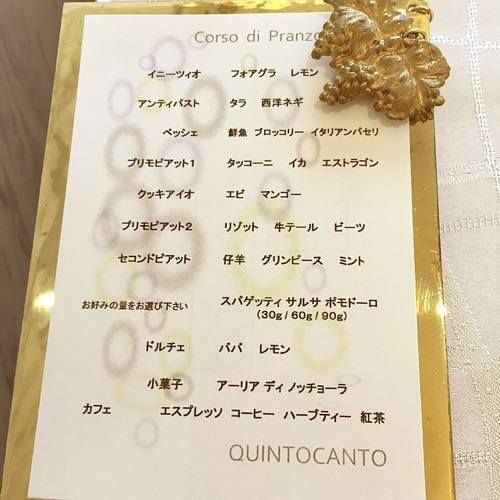 Corso di Pranzo
イニーツィオ フォアグラ レモン
アンティパスト タラ 西洋ネギ
ペッシェ 鮮魚 ブロッコリー イタリアンパセリ
プリモピアット1 タッコーニ イカ エストラゴン
クッキアイオ エビ マンゴー
プリモピアット2 リゾット 牛テール ビーツ
セコンドピアット 仔羊 グリンピース ミント
お好みの量をお選び下さい スパゲッティ サルサ ポモドーロ
(30g / 60g / 90g)
ドルチェ ババ レモン
小菓子 アーリア ディ ノッチョーラ
カフェ エスプレッソ コーヒー ハーブティー 紅茶
QUINTOCANTO